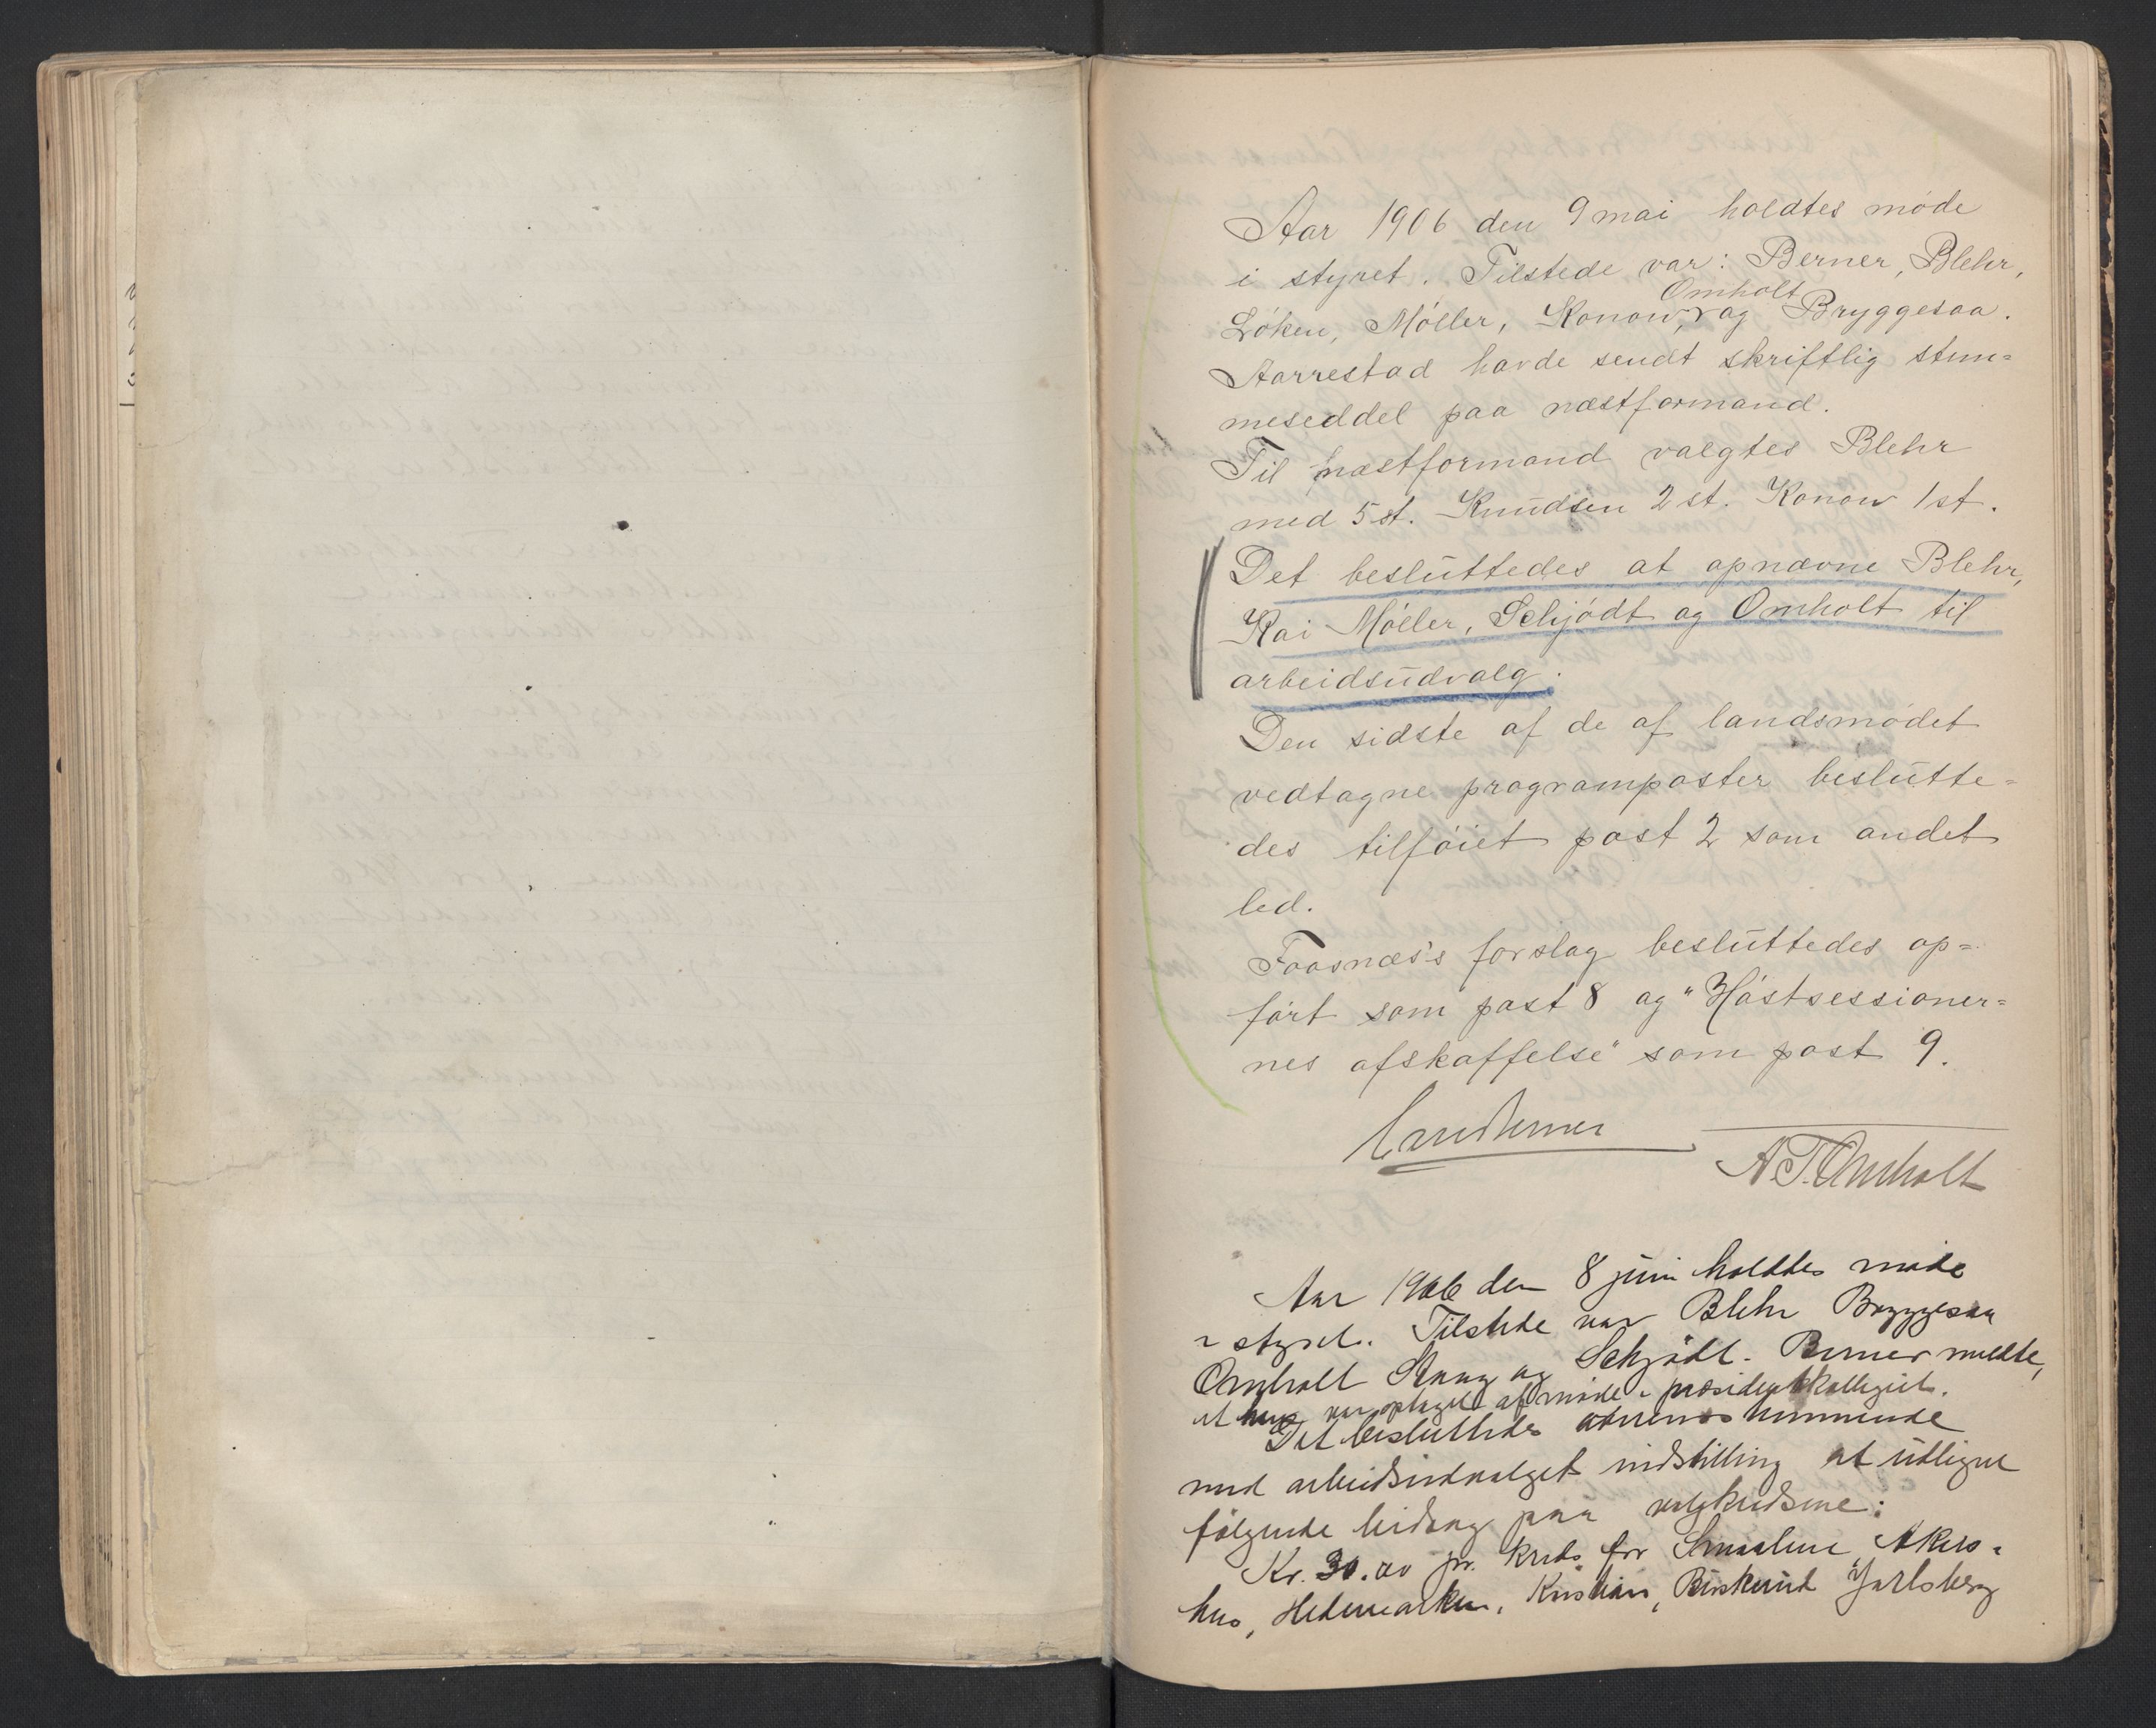 Aar 1906 den 9 mai holdtes møde
i styret. Tilstede var: Berner, Blehr,
Løken, Møller, Konow, Omholt og Bryggesaa.
Aarrestad havde sendt skriftlig stem=
meseddel paa næstformand.
Til næstformand valgtes Blehr
med 5 st. Knudsen 2 st. Konow 1 st.
Det besluttedes at opnævne Blehr,
Kai Møller, Schjødt og Omholt til
arbeidsudvalg.
Den sidste af de af landsmødet
vedtagne programposter beslutte=
des tilføiet post 2 som andet
led.
Faasnæs's forslag besluttedes op=
ført som post 8 og "Høstsessioner=
nes afskaffelse" som post 9.
Carl Berner
A.T. Omholt
Aar 1906 den 8 juni holdtes møde
i styret. Tilstede var Blehr Bryggesaa
Omholt Stang og Schjødt. Berner meldte,
at han var optaget af møde i præsidentskollegiet.
Det besluttedes overensstemmende
med arbeidsudvalget indstilling at udligne
følgende bidrag paa valgkredsene:
Kr. 30.00 pr. kreds for Smaalene Akers=
hus, Hedemarken, Kristians, Buskerud Jarlsberg